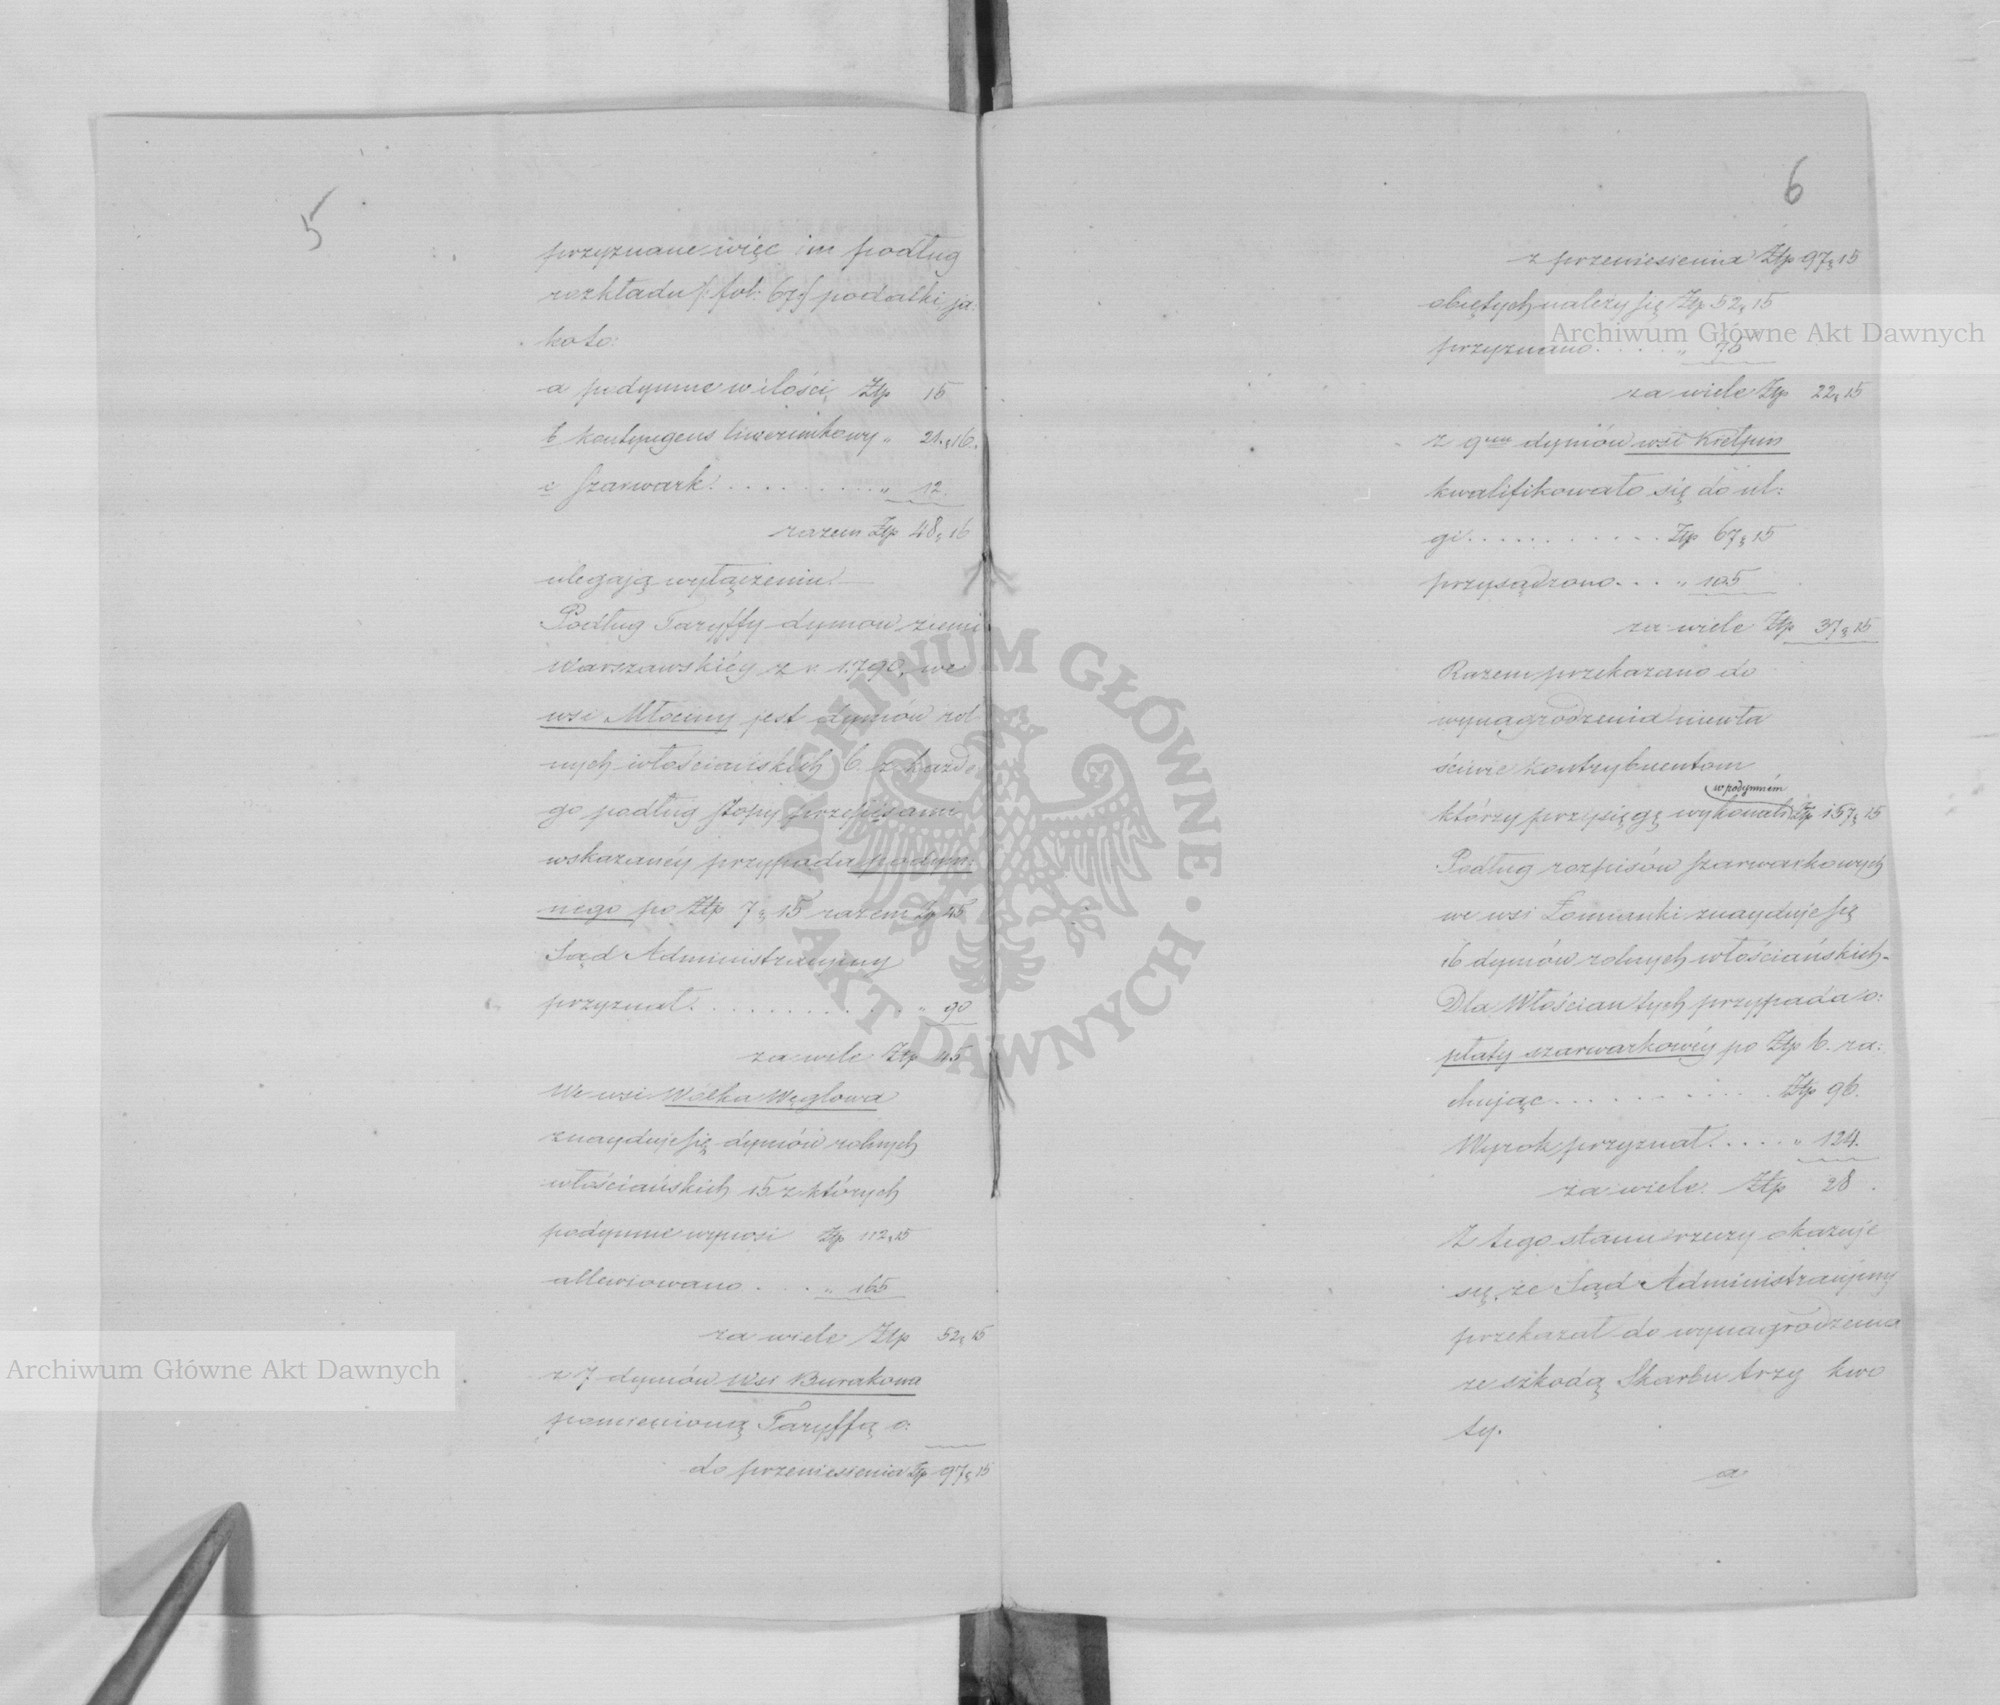 5
przyznane więc im podług
rozkładu /: fol: 67 :/ podatki ja:
koto:
a podymne w ilości, Złp 15
b kontyngens liwerunkowy „ 21„16.
c szarwark . . . . . . . . „ 12.
razem Złp 48„16
ulegają wyłączeniu. —
Podług Taryffy dymow ziemi
Warszawskiéy z r. 1790, we
wsi Młociny jest dymów rol
nych włościańskich 6. z każde
go podług stopy przepisami
wskazanéy przypada podym:
nego po Złp 7„15 razem Złp 45
Sąd Administracyiny
przyznał . . . . . . . . . . „ 90
za wile Złp 45
We wsi Wólka Węglowa
znayduje się dymów rolnych
włościańskich 15 z których
podymne wynosi Złp 112„15
allewiowano . . . . „ 165
za wiele Złp 52„15
z 7 dymów wsi Burakowa
pomienioną Taryffą o:
do przeniesienia Złp 97„15
6
z przeniesienia Złp 97„15
obiętych należy się Złp 52„15
przyznano . . . . . „ 75
za wiele Złp 22„15
z 9ciu dymów wsi Kiełpin
kwalifikowało się do ul:
gi . . . . . . . . . . . Złp 67„15
przysądzono . . . „ 105
za wiele Złp 37„15
Razem przekazano do
wynagrodzenia niewła
ściwie kontrybuentom
w podymném
którzy przysięgę wykonali Złp 157„15
Podług rozpisów szarwarkowych
we wsi Łomianki znayduje się
16 dymów rolnych włościańskich –
Dla Włościan tych przypada o:
płaty szarwarkowéy po Złp 6. ra:
chując . . . . . . . . . . . Złp 96.
Wyrok przyznał . . . . . „ 124.
za wiele. Złp 28.
Z tego stanu rzeczy okazuje
się, że Sąd Administracyiny
przekazał do wynagrodzenia
ze szkodą Skarbu trzy kwo
ty.
a
Archiwum Główne Akt Dawnych
Archiwum Główne Akt Dawnych
ARCHIWUM GŁÓWNE · AKT DAWNYCH